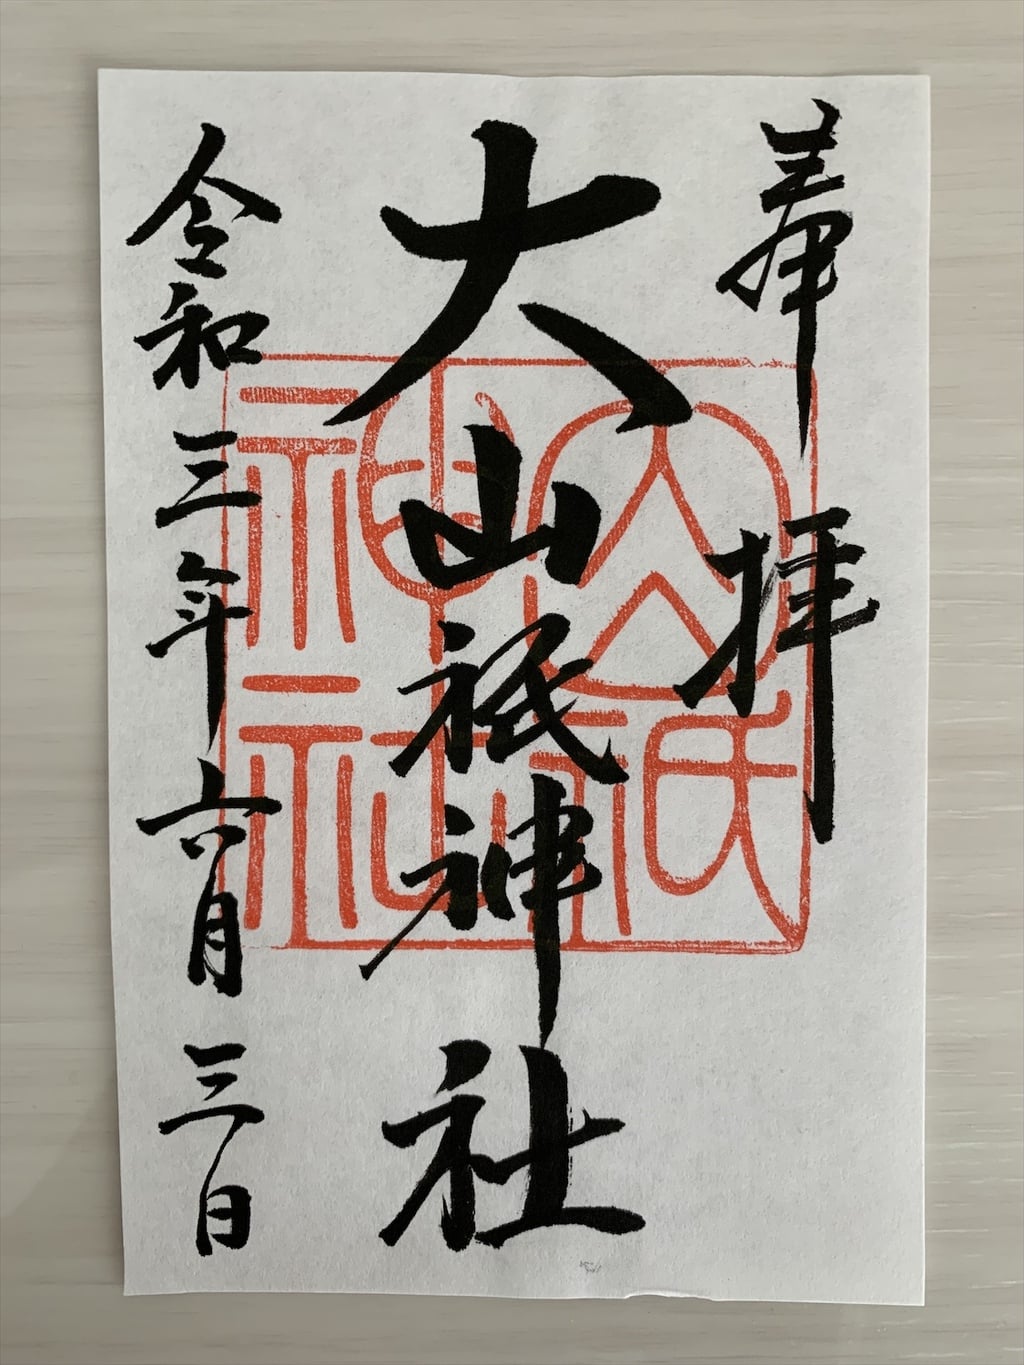 奉拝
大山祇神社
令和三年六月三日
大山祇神社